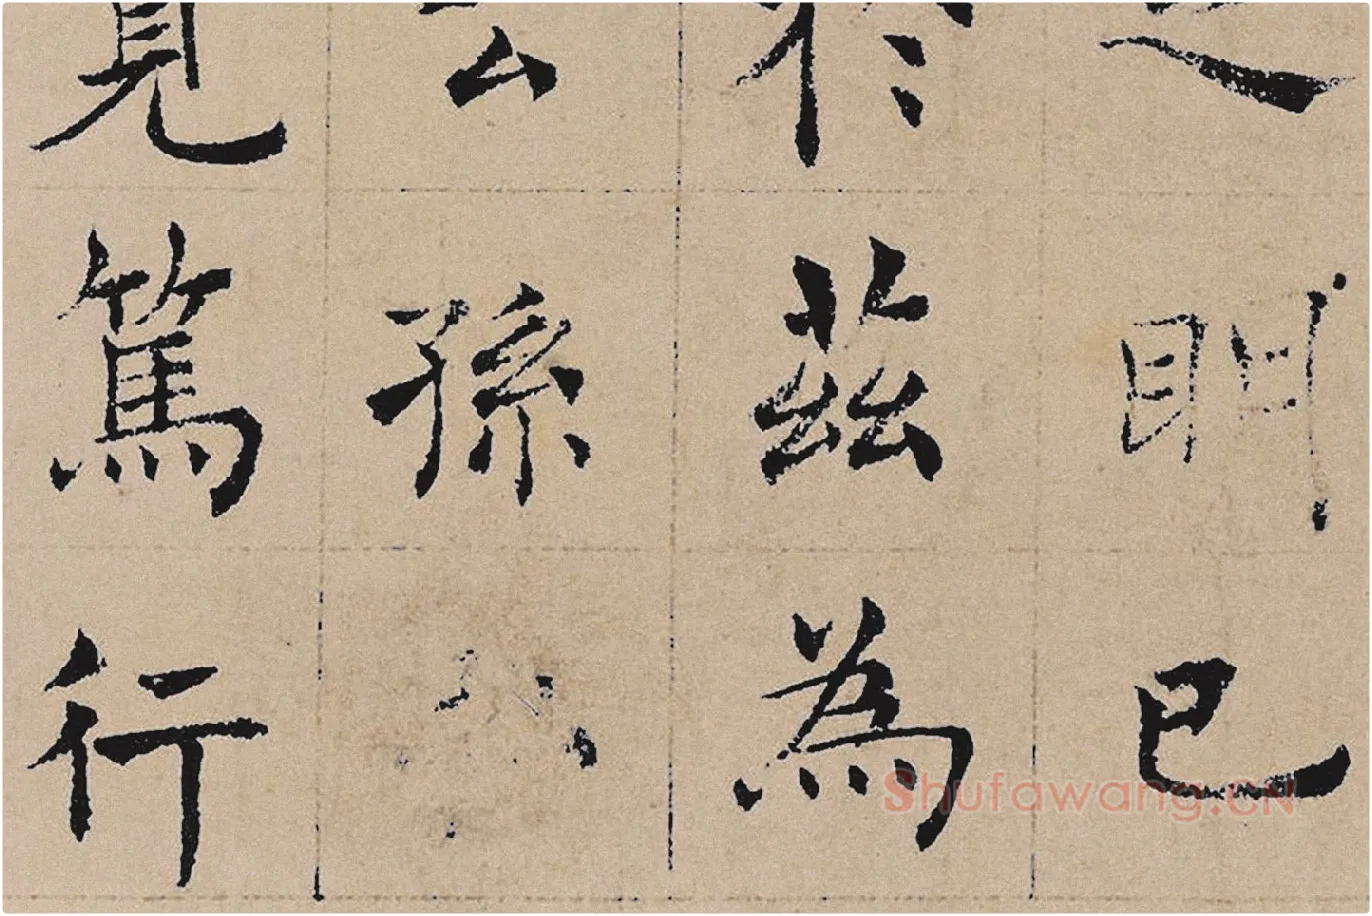 門已
於茲為
孫
篤行
Shufawang.CN